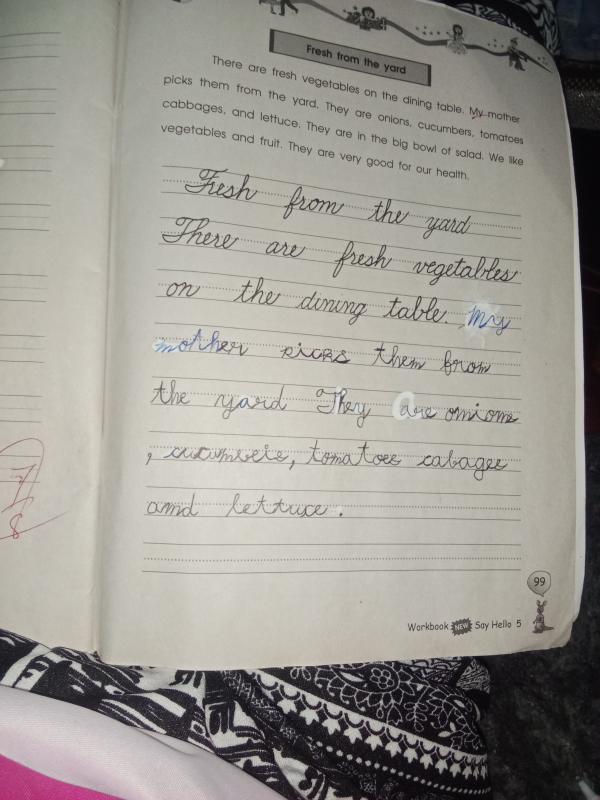 Fresh from the yard
There are fresh vegetables on the dining table. My mother
picks them from the yard. They are onions, cucumbers, tomatoes
cabbages, and lettuce. They are in the big bowl of salad. We like
vegetables and fruit. They are very good for our health.
Fresh from the yard
There are fresh vegetables
on the dining table. My
mother picks them from
the yard They are onions
, cucumbers, tomatoes cabages
and lettuce.
99
Workbook NEW Say Hello 5